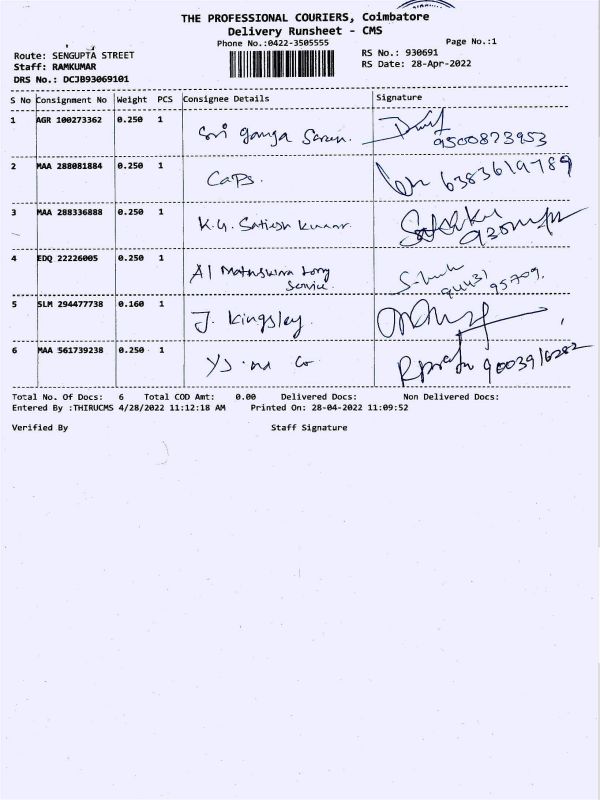 THE PROFESSIONAL COURIERS, Coimbatore
Delivery Runsheet - CMS
Phone No.:0422-3505555
Page No.:1
Route: SENGUPTA STREET
RS No.: 930691
Staff: RAMKUMAR
RS Date: 28-Apr-2022
DRS No.: DCJB93069101
S No Consignment No Weight PCS Consignee Details Signature
1 AGR 100273362 0.250 1 Sri ganga
9500873953
2 MAA 288081884 0.250 1 Caps. 6383619789
3 MAA 288336888 0.250 1 K.G. Satiesh Kumar.
4 EDQ 22226005 0.250 1 Al
Service.
94431 95709.
5 SLM 294477738 0.160 1 J. Kingsley.
6 MAA 561739238 0.250 1 Co 9003916282
Total No. Of Docs: 6 Total COD Amt: 0.00 Delivered Docs: Non Delivered Docs:
Entered By :THIRUCMS 4/28/2022 11:12:18 AM Printed On: 28-04-2022 11:09:52
Verified By Staff Signature